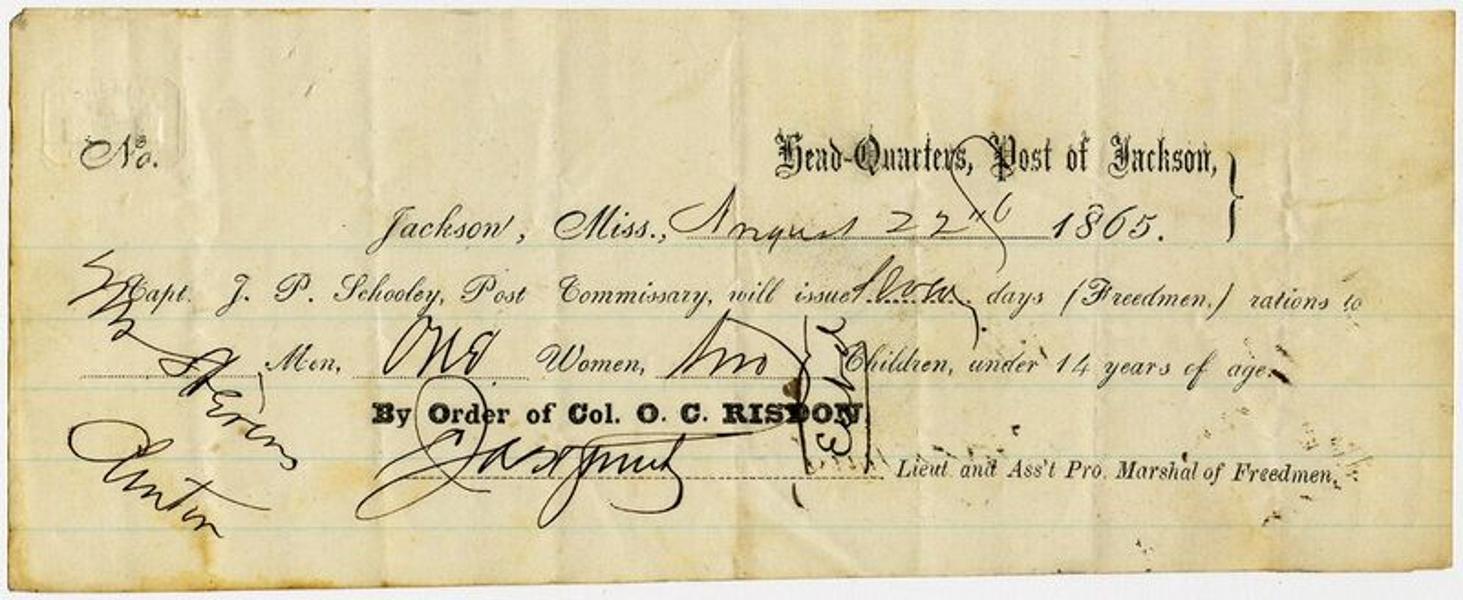 No.
Head-Quarters, Post of Jackson,
Jackson, Miss., August 22nd 1865.
Capt. J. P. Schooley, Post Commissary, will issue days (Freedmen.) rations to
Men, One Women, two Children, under 14 years of age.
By Order of Col. O. C. RISDON.
Lieut and Ass't Pro. Marshal of Freedmen.
Stevens
Clinton